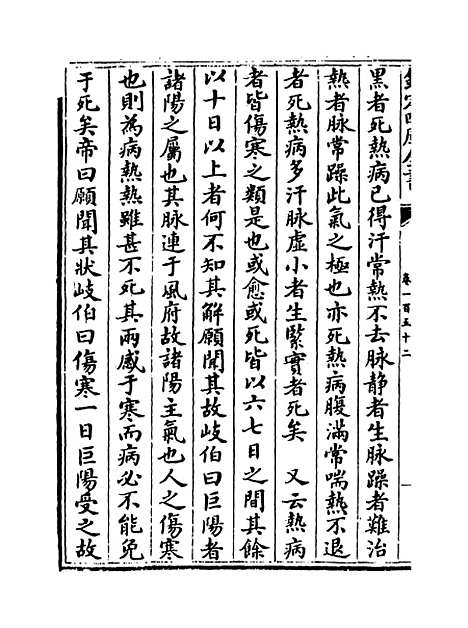 欽定四庫全書
卷一百五十二
黑者死熱病已得汗常熱不去脉静者生脉躁者難治
熱者脉常躁此氣之極也亦死熱病腹滿常喘熱不退
者死熱病多汗脉虚小者生緊實者死矣　又云熱病
者皆傷寒之類是也或愈或死皆以六七日之間其餘
以十日以上者何不知其解願聞其故岐伯曰巨陽者
諸陽之屬也其脉連于風府故諸陽主氣也人之傷寒
也則為病熱熱雖甚不死其兩感于寒而病必不能免
于死矣帝曰願聞其狀岐伯曰傷寒一日巨陽受之故